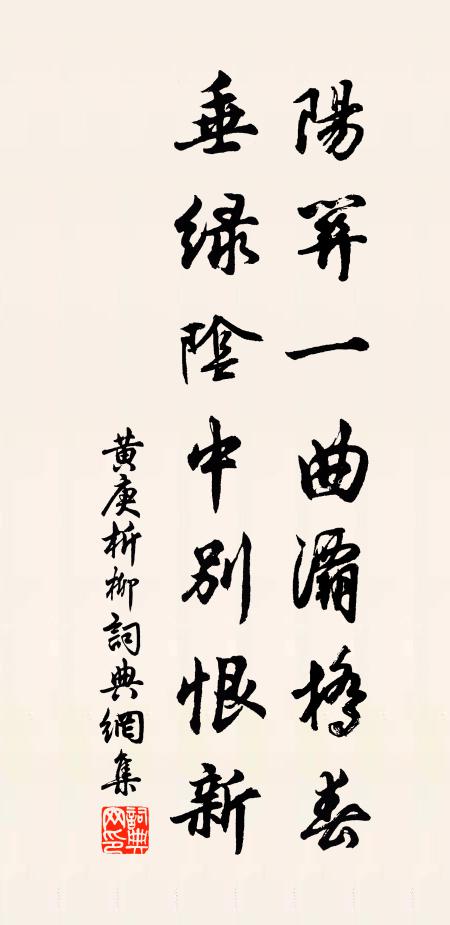 陽關一曲灞橋春
垂綠陰中別恨新
黃庚折柳詞典網集
詞典网印